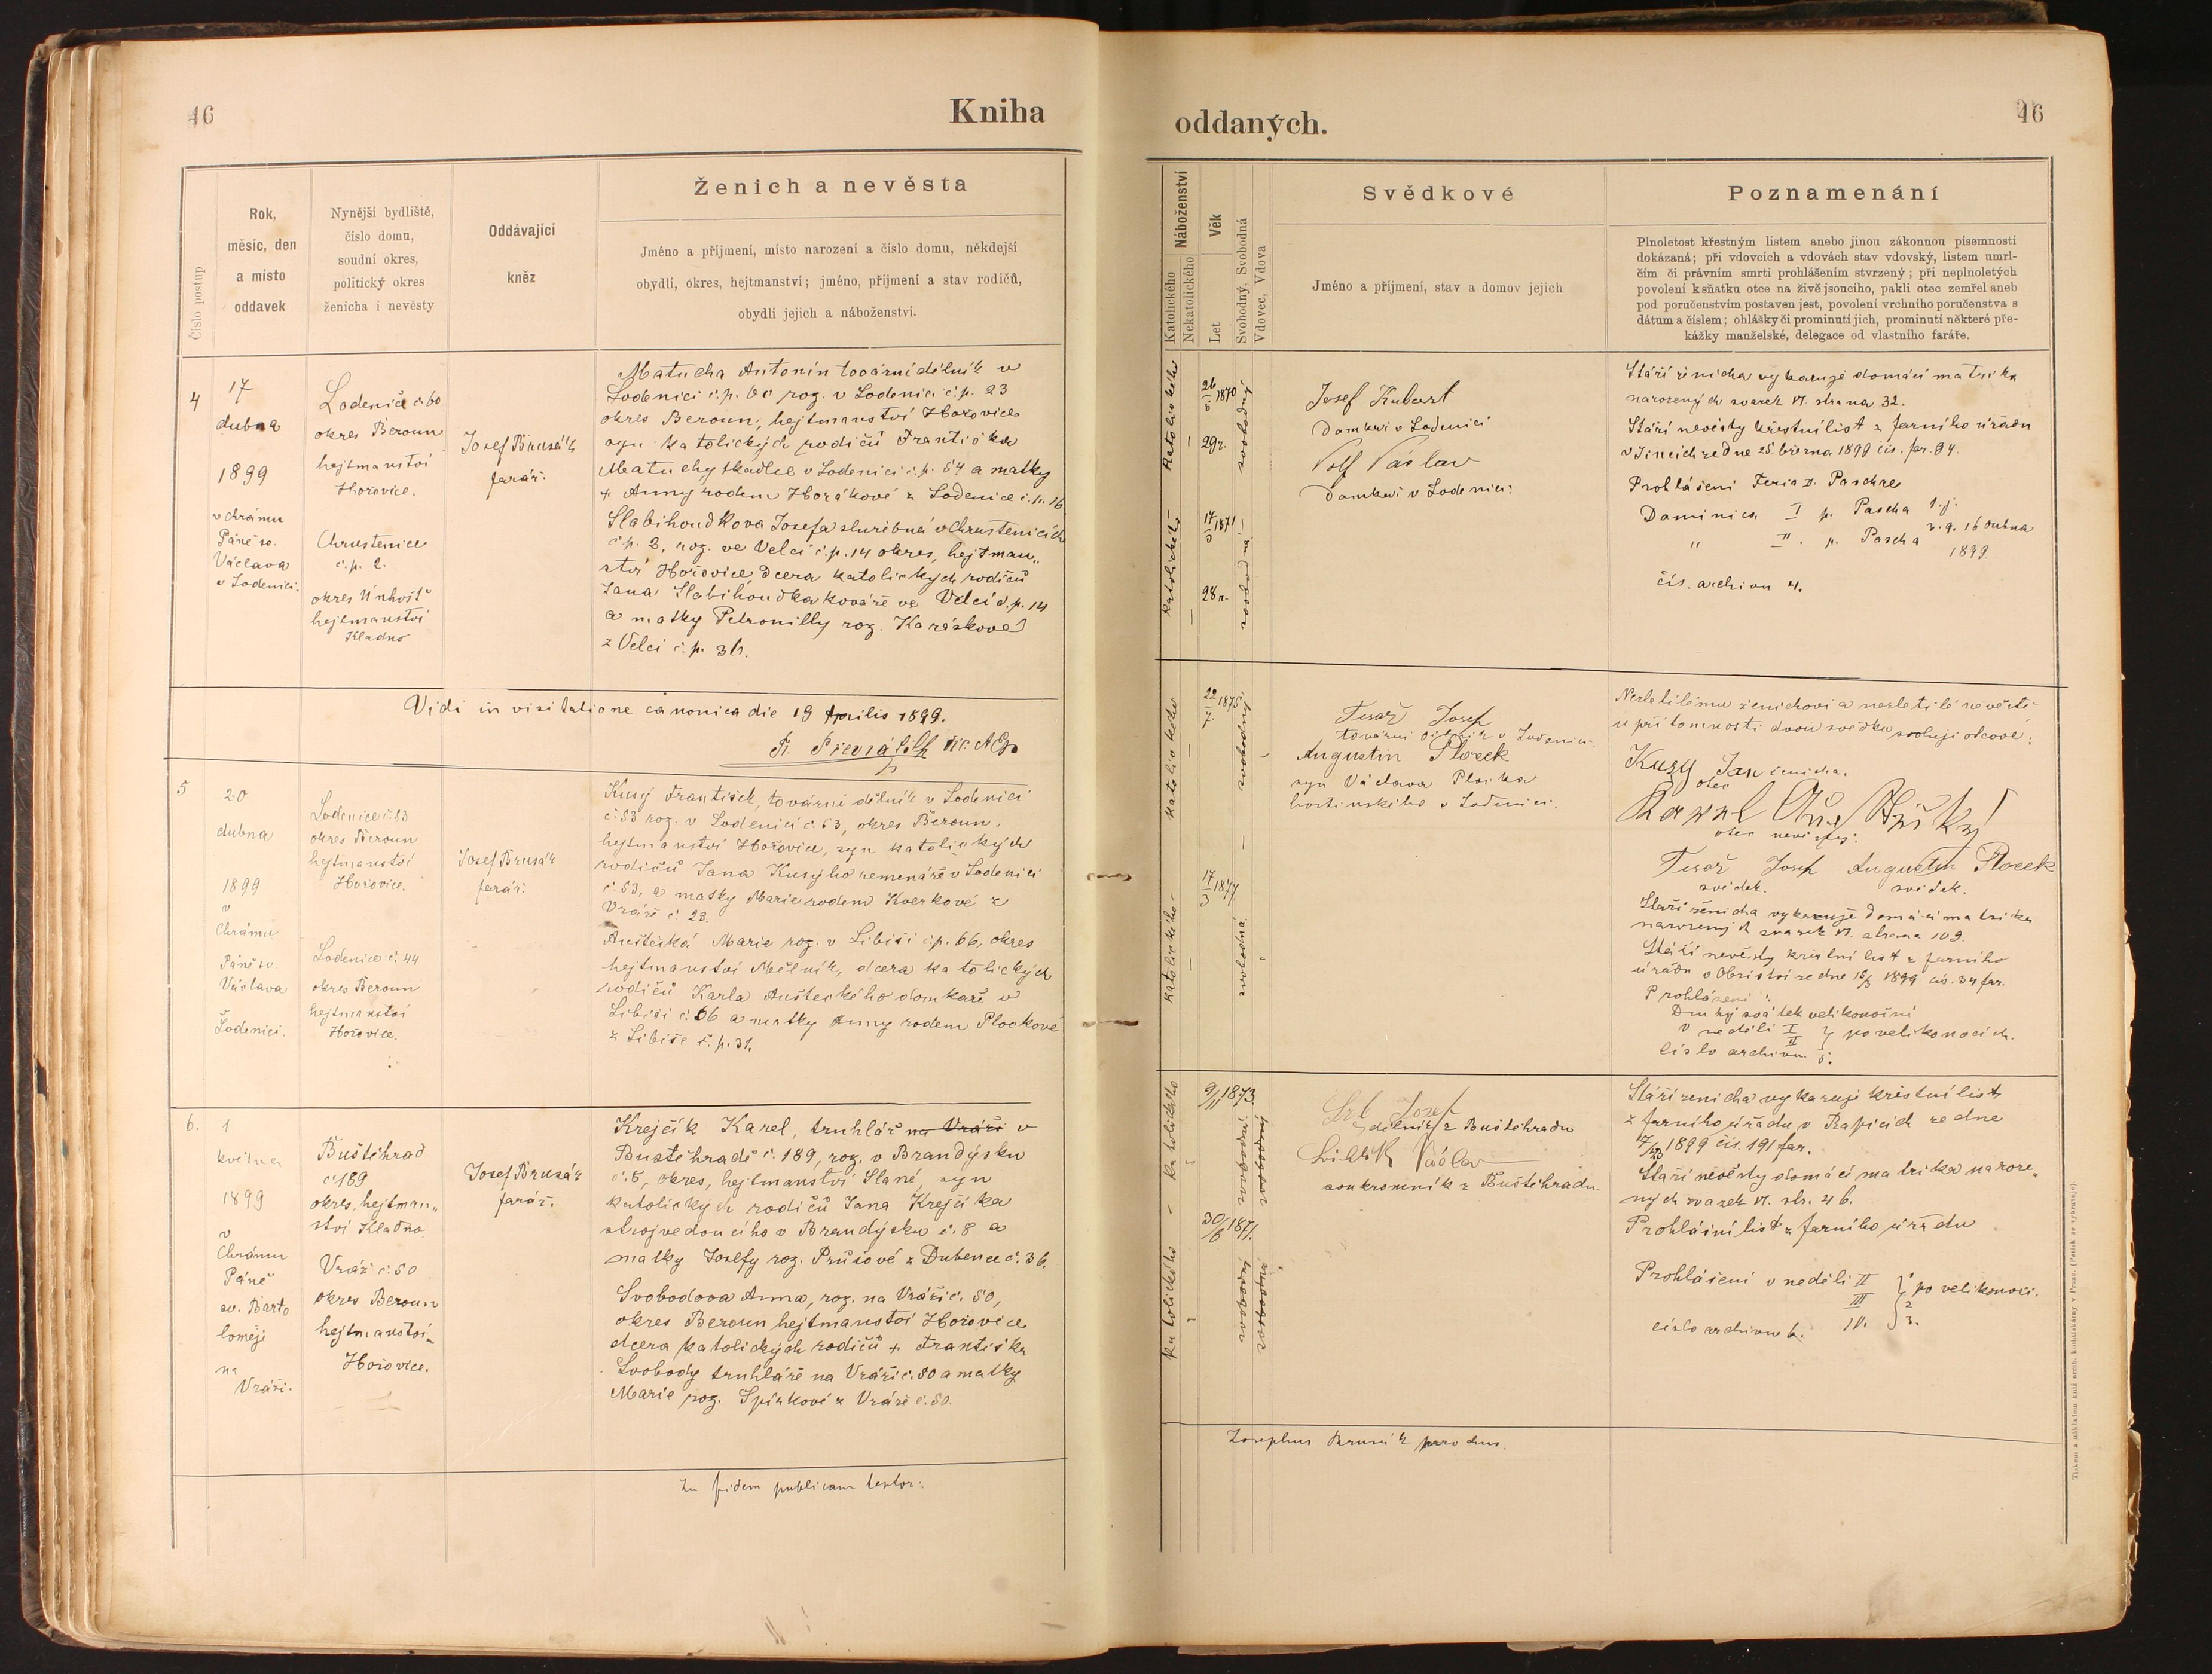 46
Kniha
Číslo postup
Rok,
měsíc, den
a místo
oddavek
Nynější bydliště,
číslo domu,
soudní okres,
politický okres
ženicha i nevěsty
Oddávající
kněz
Ženich a nevěsta
Jméno a příjmení, místo narození a číslo domu, někdejší
obydlí, okres, hejtmanství; jméno, příjmení a stav rodičů,
obydlí jejich a náboženství.
4
17
dubna
1899
v chrámu
Páně sv.
Václava
v Loděnici.
Loděnice č. 60
okres Beroun
hejtmanství
Hořovice.
Chrustenice
č.p. 2.
okres Únhošť
hejtmanství
Kladno
Josef Brusák
farář.
Matucha Antonín tovární dělník v
Loděnici č.p. 60 roz. v Loděnici č.p. 23
okres Beroun, hejtmanství Hořovice
syn katolických rodičů Františka
Matuchy tkadlce v Loděnici č.p. 54 a matky
+ Anny rodem Horákové z Loděnice č.p. 16
Slabihoudkova Josefa služebná v Chrustenicích
č.p. 2, roz. ve Velcí č.p. 14 okres, hejtman„
ství Hořovice, dcera katolických rodičů
Jana Slabihoudka kováře ve Velcí č.p. 14
a matky Petronilly roz. Karáskové
z Velcí č.p. 36.
Vidi in visitatione canonica die 19 Aprilis 1899.
5
20
dubna
1899
v
Chrámu
Páně sv.
Václava
Loděnici.
Loděnice č. 53
okres Beroun
hejtmanství
Hořovice.
Loděnice č. 44
okres Beroun
hejtmanství
Hořovice.
Josef Brusák
farář.
Kusý František, tovární dělník v Loděnici
č. 53 roz. v Loděnici č. 53, okres Beroun,
hejtmanství Hořovice, syn katolických
rodičů Jana Kusýho řemenáře v Loděnici
č. 53, a matky Marie rodem Kverkové z
Vráže č. 23.
Aušťická Marie roz. v Libiši č.p. 66, okres
hejtmanství Mělník, dcera katolických
rodičů Karla Aušteckého domkaře v
Libiši č. 66 a matky Anny rodem Plockové
z Libiše č.p. 31.
6.
1
května
1899
v
Chrámu
Páně
sv. Barto
loměje
na
Vráži.
Buštěhrad
č. 189
okres, hejtman„
ství Kladno
Vráž č. 50
okres Beroun
hejtmanství
Hořovice.
Josef Brusák
farář.
Krejčík Karel, truhlář na Vráži v
Buštěhradě č. 189, roz. v Brandýsku
č. 8, okres, hejtmanství Slané, syn
katolických rodičů Jana Krejčíka
strojvedoucího v Brandýsku č. 8 a
matky Josefy roz. Průšové z Dubence č. 36.
Svobodova Anna, roz. na Vráži č. 50,
okres Beroun hejtmanství Hořovice
dcera katolických rodičů + Františka
Svobody truhláře na Vráži č. 50 a matky
Marie roz. Spirkové z Vráže č. 50.
In fidem publicam testor:
oddaných.
46
Náboženství
Katolického
Nekatolického
Věk
Let
Svobodný, Svobodná
Vdovec, Vdova
Svědkové
Jméno a příjmení, stav a domov jejich
Poznamenání
Plnoletost křestným listem anebo jinou zákonnou písemností
dokázaná; při vdovcích a vdovách stav vdovský, listem umrl-
čím či právním smrti prohlášením stvrzený; při neplnoletých
povolení k sňatku otce na živě jsoucího, pakli otec zemřel aneb
pod poručenstvím postaven jest, povolení vrchního poručenstva s
dátum a číslem; ohlášky či prominutí jich, prominutí některé pře-
kážky manželské, delegace od vlastního faráře.
Katolického
26/5 1870
29 r.
svobodný
Katolického
17/3 1871
28 r.
svobodná
Josef Kubart
Domkař v Loděnici
Volf Václav
Domkař v Loděnici
Stáří ženicha vykazuje domácí matrika
narozených svazek VI. strana 32.
Stáří nevěsty křestní list z farního úřadu
v Jincích ze dne 25. března 1899 čís. far. 94.
Prohlášení Feria II. Paschae
Dominica I p. Pascha t.j.
" II. p. Pascha 2. 9. 16 dubna
1899
čís. archivu 4.
Katolického
22/7 1875
svobodný
Katolického
17/3 1877
svobodná
Tesař Josef
tovární dělník v Loděnici
Augustin Plocek
syn Václava Plocka
hostinského v Loděnici.
Nezletilému ženichovi a nezletilé nevěstě
u přítomnosti dvou svědků svolují otcové:
Kusy Jan ženicha.
otec
otec nevěsty.
Tesař Josef Augustin Plocek
svědek. svědek.
Stáří ženicha vykazuje domácí matrika
narozených svazek VI. strana 109.
Stáří nevěsty křestní list z farního
úřadu v Obříství ze dne 15/3 1899 čís. 34 far.
Prohlášení:
Druhý svátek velikonoční
V neděli I
II } po velikonocích.
číslo archivu 5.
Katolického
9/11 1873
svobodný
Katolického
30/6 1877.
svobodná
Josef
dělník z Buštěhradu
Václav
soukromník z Buštěhradu.
Stáří ženicha vykazuje křestní list
z farního úřadu v Rapicích ze dne
17/3 1899 čís. 191 far.
Stáří nevěsty domácí matrika naroze„
ných svazek VI. str. 46.
Prohlášní list z farního úřadu
Prohlášení v neděli II
III
IV. } po velikonoci.
číslo archivu 6.
Josephus Brusák parochus.
Tiskem a nákladem kníž. arcib. knihtiskárny v Praze. (Patisk se vyhrazuje)